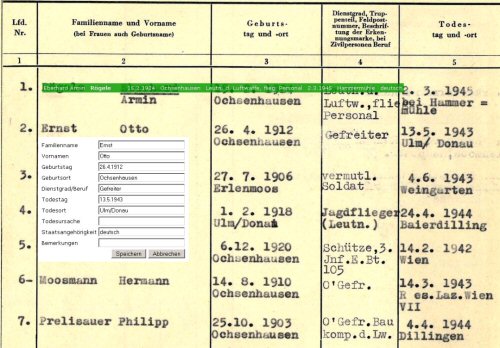 Lfd. Nr.
Familienname und Vorname
(bei Frauen auch Geburtsname)
Geburts-
tag und -ort
Dienstgrad, Trup-
penteil, Feldpost-
nummer, Beschrif-
tung der Erken-
nungsmarke, bei
Zivilpersonen Beruf
Todes-
tag und -ort
1 2 3 4 5
Eberhard Armin Rögele 16.2.1924 Ochsenhausen Leutn. d. Luftwaffe, flieg. Personal 2.3.1945 Hammermühle deutsch
1. 2. 3. 1945
Armin Ochsenhausen Luftw.,flie bei Hammer =
Personal mühle
2. Ernst Otto 26. 4. 1912 Gefreiter 13.5. 1943
Ochsenhausen Ulm/ Donau
Familienname Ernst
Vornamen Otto
Geburtstag 26.4.1912
Geburtsort Ochsenhausen
Dienstgrad/Beruf Gefreiter
Todestag 13.5.1943
Todesort Ulm/Donau
Todesursache
Staatsangehörigkeit deutsch
Bemerkungen
Speichern Abbrechen
3. 27. 7. 1906 vermutl. 4.6. 1943
Erlenmoos Soldat Weingarten
4. 1. 2. 1918 Jagdflieger 24.4. 1944
Ulm/Donau (Leutn.) Baierdilling
5. 6.12. 1920 Schütze,3. 14.2. 1942
Ochsenhausen Jnf.E.Bt. Wien
105
6- Moosmann Hermann 14. 8. 1910 O'Gefr. 14.3. 1943
Ochsenhausen R es.Laz.Wien
VII
7. Prelisauer Philipp 25.10. 1903 O'Gefr.Bau 4.4. 1944
Ochsenhausen komp.d.Lw. Dillingen